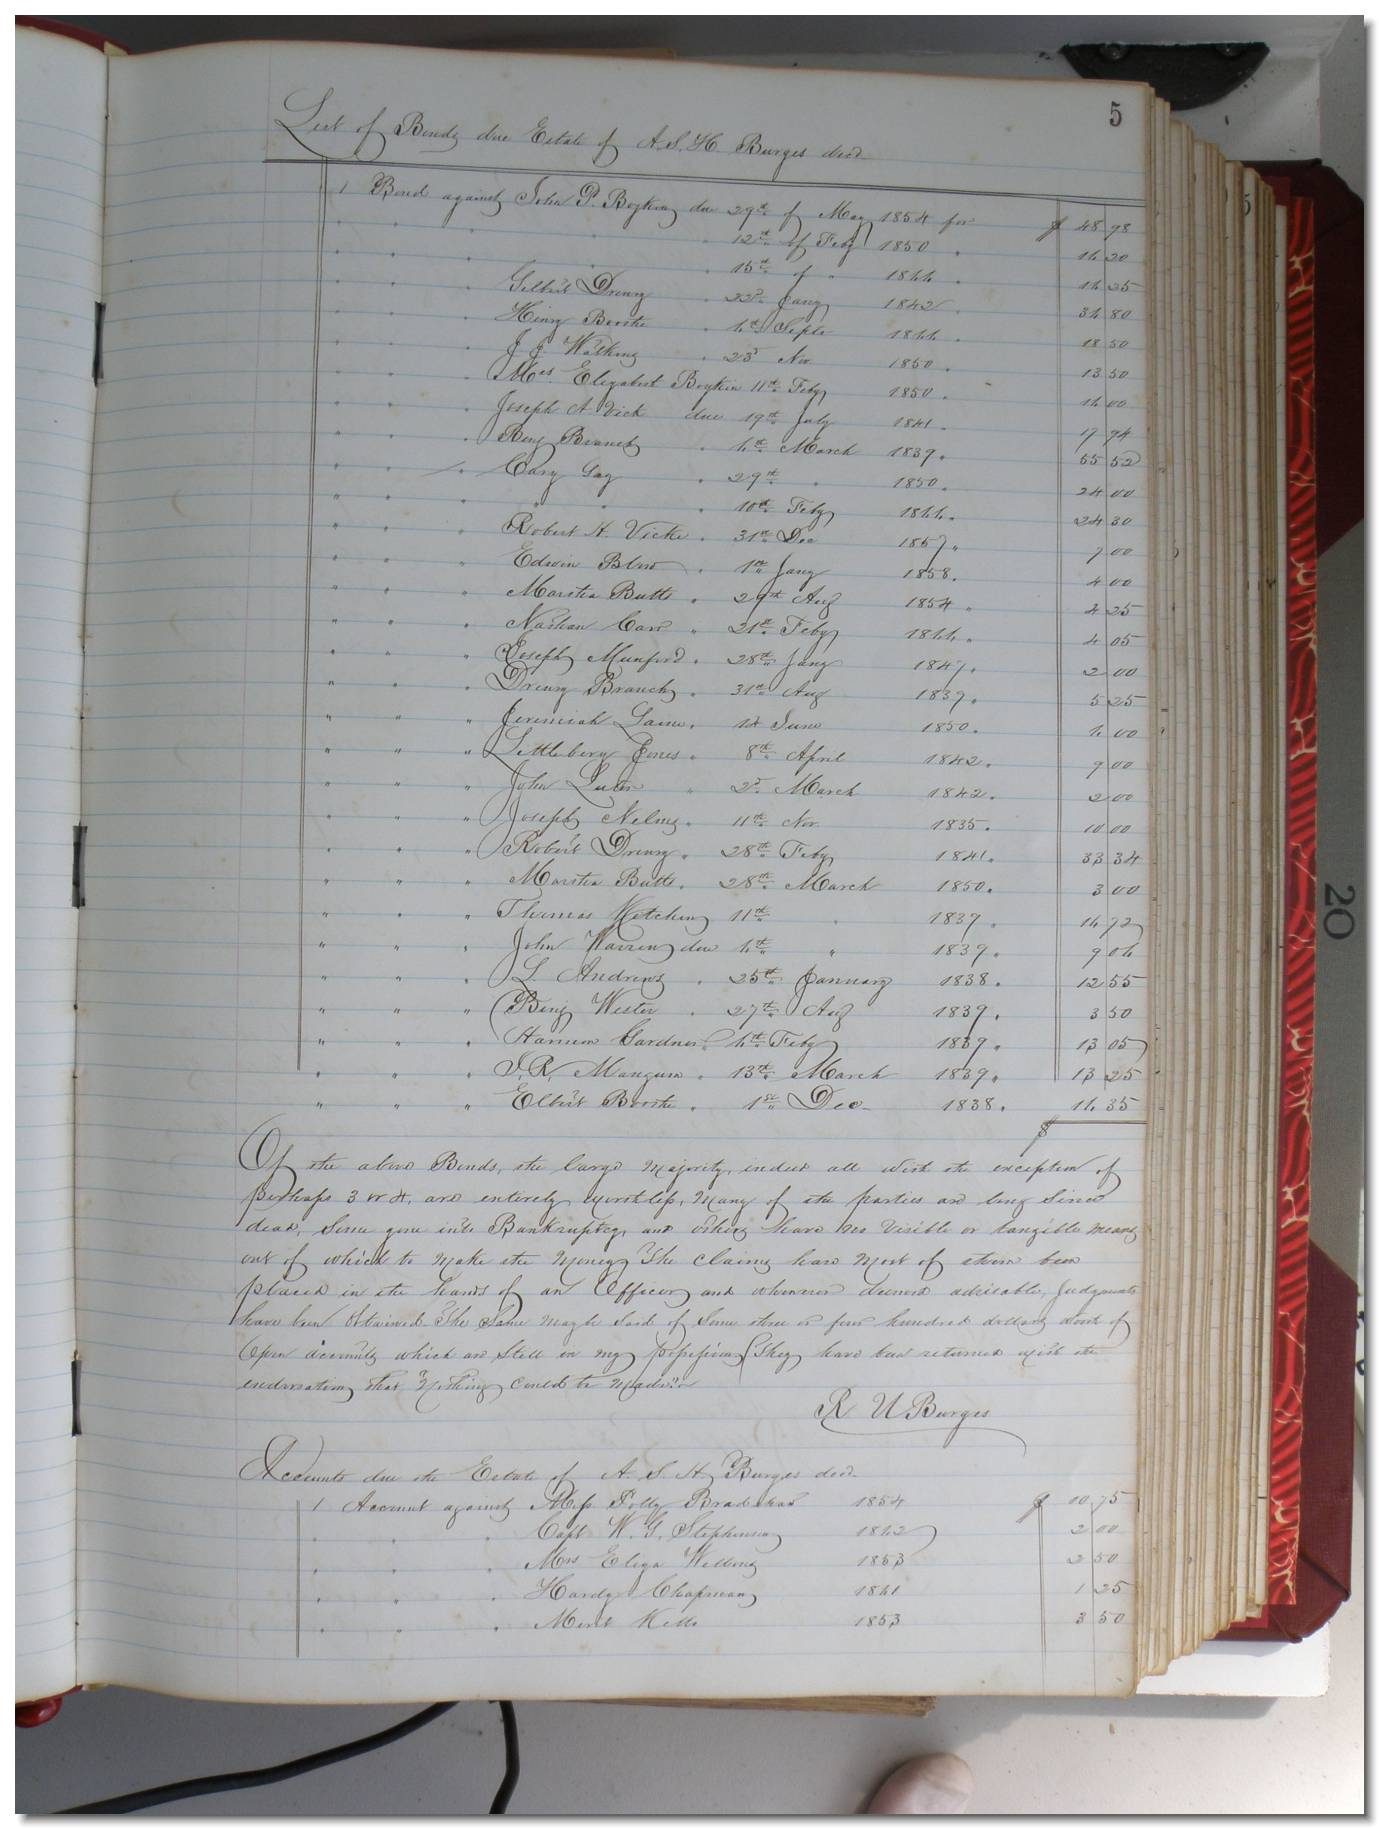 5
List of Bonds due Estate of A.S.H. Burges decd.
1 Bond against John P. Boykin, due 29th of May 1854 for $ 48 98
" " " " 12th of Feby 1850 " 16 20
" " " " 15th of " 1844 " 16 25
" " " Gilbert Drewry " 22d Jany 1842 " 36 80
" " " Henry Boothe " 6th Septr 1844 " 18 50
" " " J. J. Watkins " 23d Nov 1850 " 13 50
" " " Mrs Elizabeth Boykin 11th Feby 1850 " 16 00
" " " Joseph A Vick due 19th July 1841 " 17 94
" " " Benj Branch " 6th March 1839 " 55 52
" " " Cary Gay " 29th " 1850 " 24 00
" " " " " 10th Feby 1844 " 24 30
" " " Robert H. Vicke " 31st Dec 1857 " 7 00
" " " Edwin Blow " 1st Jany 1858 " 4 00
" " " Marstia Butts " 29th Aug 1854 " 4 25
" " " Nathan Carr " 21st Feby 1844 " 4 05
" " " Joseph Munford " 28th Jany 1847 " 2 00
" " " Drewry Branch " 31st Aug 1839 " 5 25
" " " Jeremiah Laine " 1st June 1850 " 6 00
" " " Littlebery Jones " 8th April 1842 " 9 00
" " " John Luter " 2d March 1842 " 2 00
" " " Joseph Nelms " 11th Nov. 1835 " 10 00
" " " Robert Drewry " 28th Feby 1841 " 33 34
" " " Marstia Butts " 28th March 1850 " 3 00
" " " Thomas Kitching 11th " 1839 " 16 72
" " " John Warren due 6th " 1839 " 9 06
" " " L Andrews " 25th January 1838 " 12 55
" " " Benj Wester " 27th Aug 1839 " 3 50
" " " Harrison Gardner " 6th Feby 1839 " 13 05
" " " J. R. Mangum " 13th March 1839 " 13 25
" " " Elbert Boothe " 1st Dec 1838 " 16 35
$
Of the above Bonds, the large majority, indeed all with the exception of
perhaps 3 or 4, are entirely worthless, Many of the parties are long since
dead, some gone into Bankruptcy, and others have no Visible or tangible means
out of which to make the Money. The claims have most of them been
placed in the hands of an Officer, and whenever deemed advisable, Judgments
have been obtained. The same may be said of some three or four hundred dollars worth of
Open accounts which are still in my possession, They have been returned with the
endorsation, that "Nothing could be made".
R U Burges
Accounts due the Estate of A. S. H. Burges decd.
1 Account against Miss Polly Bradshaw 1854 $ 10 75
" " " Capt W. G. Stephenson 1842 2 00
" " " Mrs Eliza Willing 1853 2 50
" " " Hardy Chapman 1841 1 25
" " " Merit Kitts 1853 3 50
20